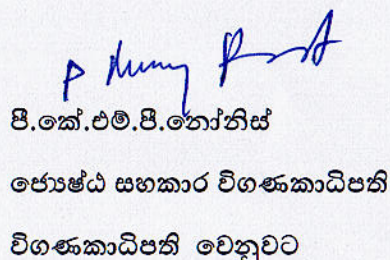 පී.කේ.එම්.පී.නෝනිස්
ජ්‍යෙෂ්ඨ සහකාර විගණකාධිපති
විගණකාධිපති වෙනුවට